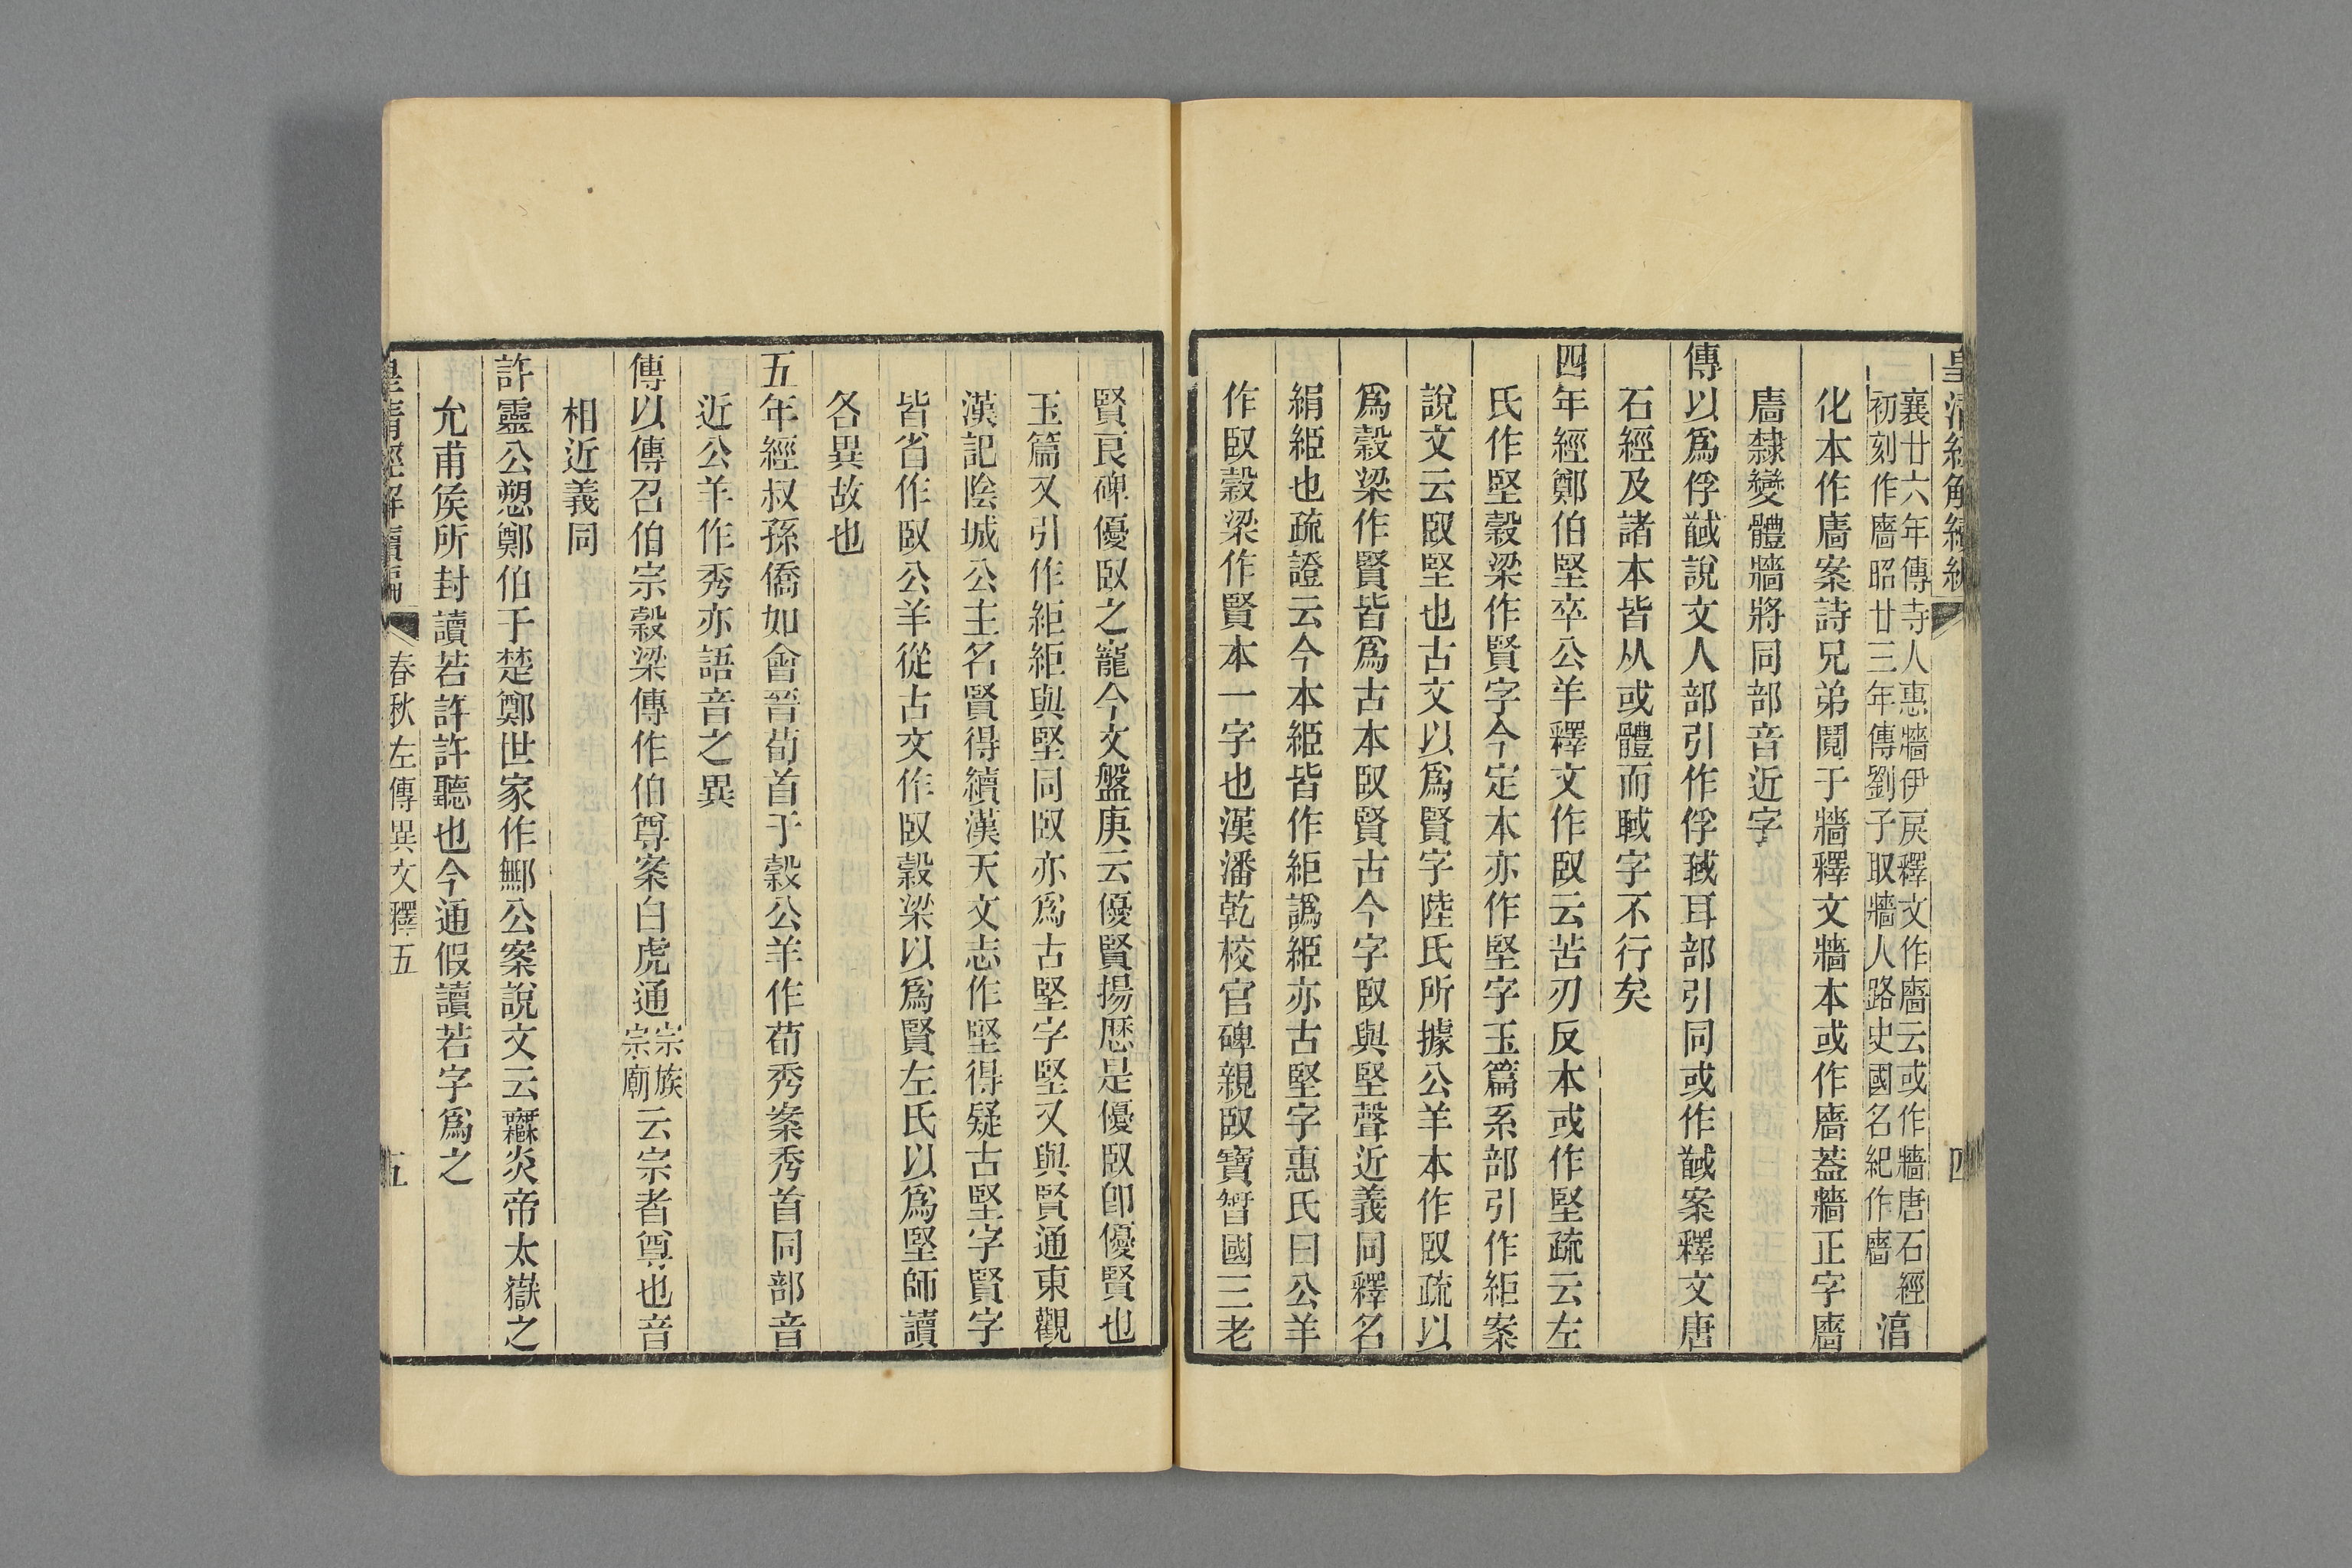 皇清經解續編
四
襄廿六年傳寺人惠牆伊戾釋文作廧云或作牆唐石經
初刻作廧昭廿三年傳劉子取牆人路史國名紀作廧
湻
化本作廧案詩兄弟鬩于牆釋文牆本或作廧葢牆正字廧
廧隸變體牆將同部音近字
傳以爲俘馘說文人部引作俘聝耳部引同或作馘案釋文唐
石經及諸本皆从或體而聝字不行矣
四年經鄭伯堅卒公羊釋文作臤云苦刃反本或作堅疏云左
氏作堅穀梁作賢字今定本亦作堅字玉篇系部引作絚案
說文云臤堅也古文以爲賢字陸氏所據公羊本作臤疏以
爲穀梁作賢皆爲古本臤賢古今字臤與堅聲近義同釋名
絹䋫也疏證云今本䋫皆作絚譌䋫亦古堅字惠氏曰公羊
作臤穀梁作賢本一字也漢潘乾校官碑親臤寶智國三老
賢良碑優臤之寵今文盤庚云優賢揚歷是優臤卽優賢也
玉篇又引作絚絚與堅同臤亦爲古堅字堅又與賢通東觀
漢記陰城公主名賢得續漢天文志作堅得疑古堅字賢字
皆省作臤公羊從古文作臤穀梁以爲賢左氏以爲堅師讀
各異故也
五年經叔孫僑如會晉荀首于穀公羊作荀秀案秀首同部音
近公羊作秀亦語音之異
傳以傳召伯宗穀梁傳作伯尊案白虎通宗族宗廟云宗者尊也音
相近義同
許靈公愬鄭伯于楚鄭世家作鄦公案說文云鄦炎帝太嶽之
允甫侯所封讀若許許聽也今通假讀若字爲之
皇清經解續編
春秋左傳異文釋五
五